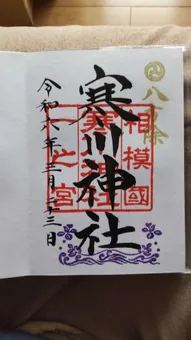 八方除
寒川神社
相模國
寒川神社
一之宮
令和六年三月二十三日